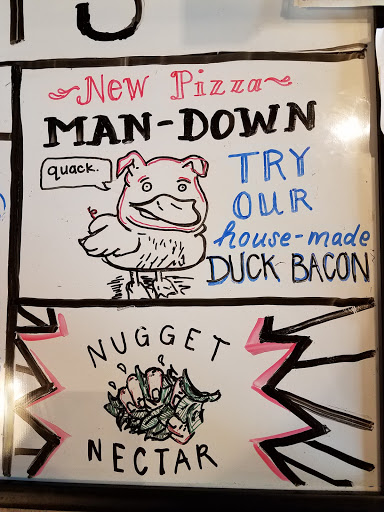 New Pizza
MAN-DOWN
quack.
TRY
OUR
house-made
DUCK BACON
NUGGET
NECTAR